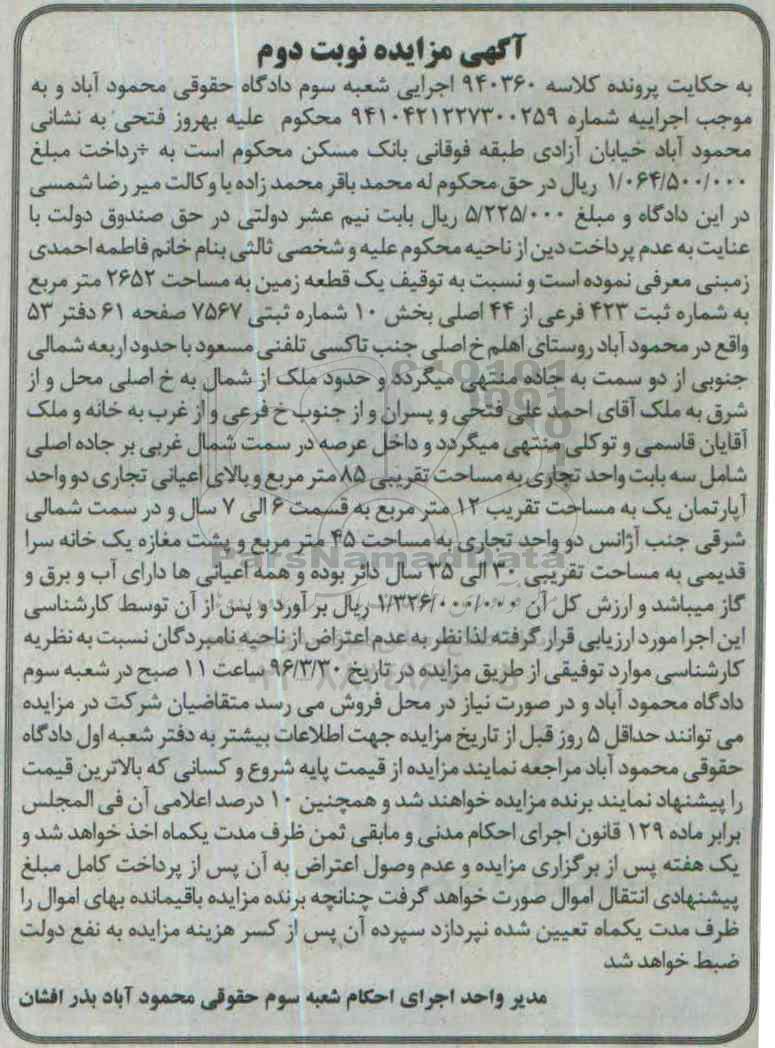 آگهی مزایده نوبت دوم
به حکایت پرونده کلاسه ۹۴۰۳۶۰ اجرایی شعبه سوم دادگاه حقوقی محمود آباد و به
موجب اجراییه شماره ۹۴۱۰۴۲۱۲۲۷۳۰۰۲۵۹ محکوم علیه بهروز فتحی به نشانی
محمود آباد خیابان آزادی طبقه فوقانی بانک مسکن محکوم است به ÷رداخت مبلغ
۱/۰۶۴/۵۰۰/۰۰۰ ریال در حق محکوم له محمد باقر محمد زاده با وکالت میر رضا شمسی
در این دادگاه و مبلغ ۵/۲۲۵/۰۰۰ ریال بابت نیم عشر دولتی در حق صندوق دولت با
عنایت به عدم پرداخت دین از ناحیه محکوم علیه و شخصی ثالثی بنام خانم فاطمه احمدی
زمینی معرفی نموده است و نسبت به توقیف یک قطعه زمین به مساحت ۲۶۵۲ متر مربع
به شماره ثبت ۴۲۳ فرعی از ۴۴ اصلی بخش ۱۰ شماره ثبتی ۷۵۶۷ صفحه ۶۱ دفتر ۵۳
واقع در محمود آباد روستای اهلم خ اصلی جنب تاکسی تلفنی مسعود با حدود اربعه شمالی
جنوبی از دو سمت به جاده منتهی میگردد و حدود ملک از شمال به خ اصلی محل و از
شرق به ملک آقای احمد علی فتحی و پسران و از جنوب خ فرعی و از غرب به خانه و ملک
آقایان قاسمی و توکلی منتهی میگردد و داخل عرصه در سمت شمال غربی بر جاده اصلی
شامل سه بابت واحد تجاری به مساحت تقریبی ۸۵ متر مربع و بالای اعیانی تجاری دو واحد
آپارتمان یک به مساحت تقریب ۱۲ متر مربع به قسمت ۶ الی ۷ سال و در سمت شمالی
شرقی جنب آژانس دو واحد تجاری به مساحت ۴۵ متر مربع و پشت مغازه یک خانه سرا
قدیمی به مساحت تقریبی ۳۰ الی ۳۵ سال دائر بوده و همه اعیانی ها دارای آب و برق و
گاز میباشد و ارزش کل آن ۱/۳۲۶/۰۰۰/۰۰۰ ریال بر آورد و پس از آن توسط کارشناسی
این اجرا مورد ارزیابی قرار گرفته لذا نظر به عدم اعتراض از ناحیه نامبردگان نسبت به نظریه
کارشناسی موارد توفیقی از طریق مزایده در تاریخ ۹۶/۳/۳۰ ساعت ۱۱ صبح در شعبه سوم
دادگاه محمود آباد و در صورت نیاز در محل فروش می رسد متقاضیان شرکت در مزایده
می توانند حداقل ۵ روز قبل از تاریخ مزایده جهت اطلاعات بیشتر به دفتر شعبه اول دادگاه
حقوقی محمود آباد مراجعه نمایند مزایده از قیمت پایه شروع و کسانی که بالاترین قیمت
را پیشنهاد نمایند برنده مزایده خواهند شد و همچنین ۱۰ درصد اعلامی آن فی المجلس
برابر ماده ۱۲۹ قانون اجرای احکام مدنی و مابقی ثمن ظرف مدت یکماه اخذ خواهد شد و
یک هفته پس از برگزاری مزایده و عدم وصول اعتراض به آن پس از پرداخت کامل مبلغ
پیشنهادی انتقال اموال صورت خواهد گرفت چنانچه برنده مزایده باقیمانده بهای اموال را
ظرف مدت یکماه تعیین شده نپردازد سپرده آن پس از کسر هزینه مزایده به نفع دولت
ضبط خواهد شد
مدیر واحد اجرای احکام شعبه سوم حقوقی محمود آباد بذر افشان
ParsNamadData